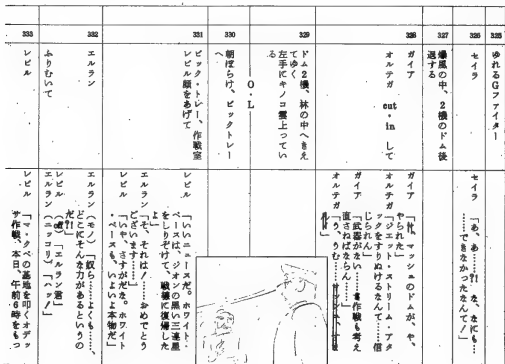 325
ゆれるGファイター
326
セイラ
セイラ 「あ、あ……!! な、なにも…
……できなかったなんて!」
327
爆風の中、2機のドム後
退する
328
ガイア
オルテガ cut・in して
ガイア 「マッシュのドムが、や、
やられた」
オルテガ 「ジェット・ストリーム・アタ
ックをすりぬけるなんて……信
じられん」
ガイア 「武器がない……作戦も考え
直さねばならん……」
オルテガ 「う、うむ……
329
ドム2機、林の中へきえ
てゆく
左手にキノコ雲上ってい
る
O・L
330
朝ぼらけ、ビックトレー
へ
331
ビック・トレー、作戦室
レビル顔をあげて
レビル 「いいニュースだ。ホワイト・
ベースは、ジオンの黒い三連星
をしりぞけて、戦線に復帰した
よ」
エルラン 「そ、それは!……おめでとう
ございます……」
レビル 「いや、さすがだな。ホワイト
・ベースも、いよいよ本物だ」
332
エルラン
ふりむいて
エルラン (モノ)「奴ら……よくも……、
どこにそんな力があるというの
だ?!」
レビル (off)「エルラン君」
エルラン (ニッコリ)「ハッ!」
333
レビル
レビル 「マ・クベの基地を叩くオデッ
サ作戦、本日、午前6時をもっ